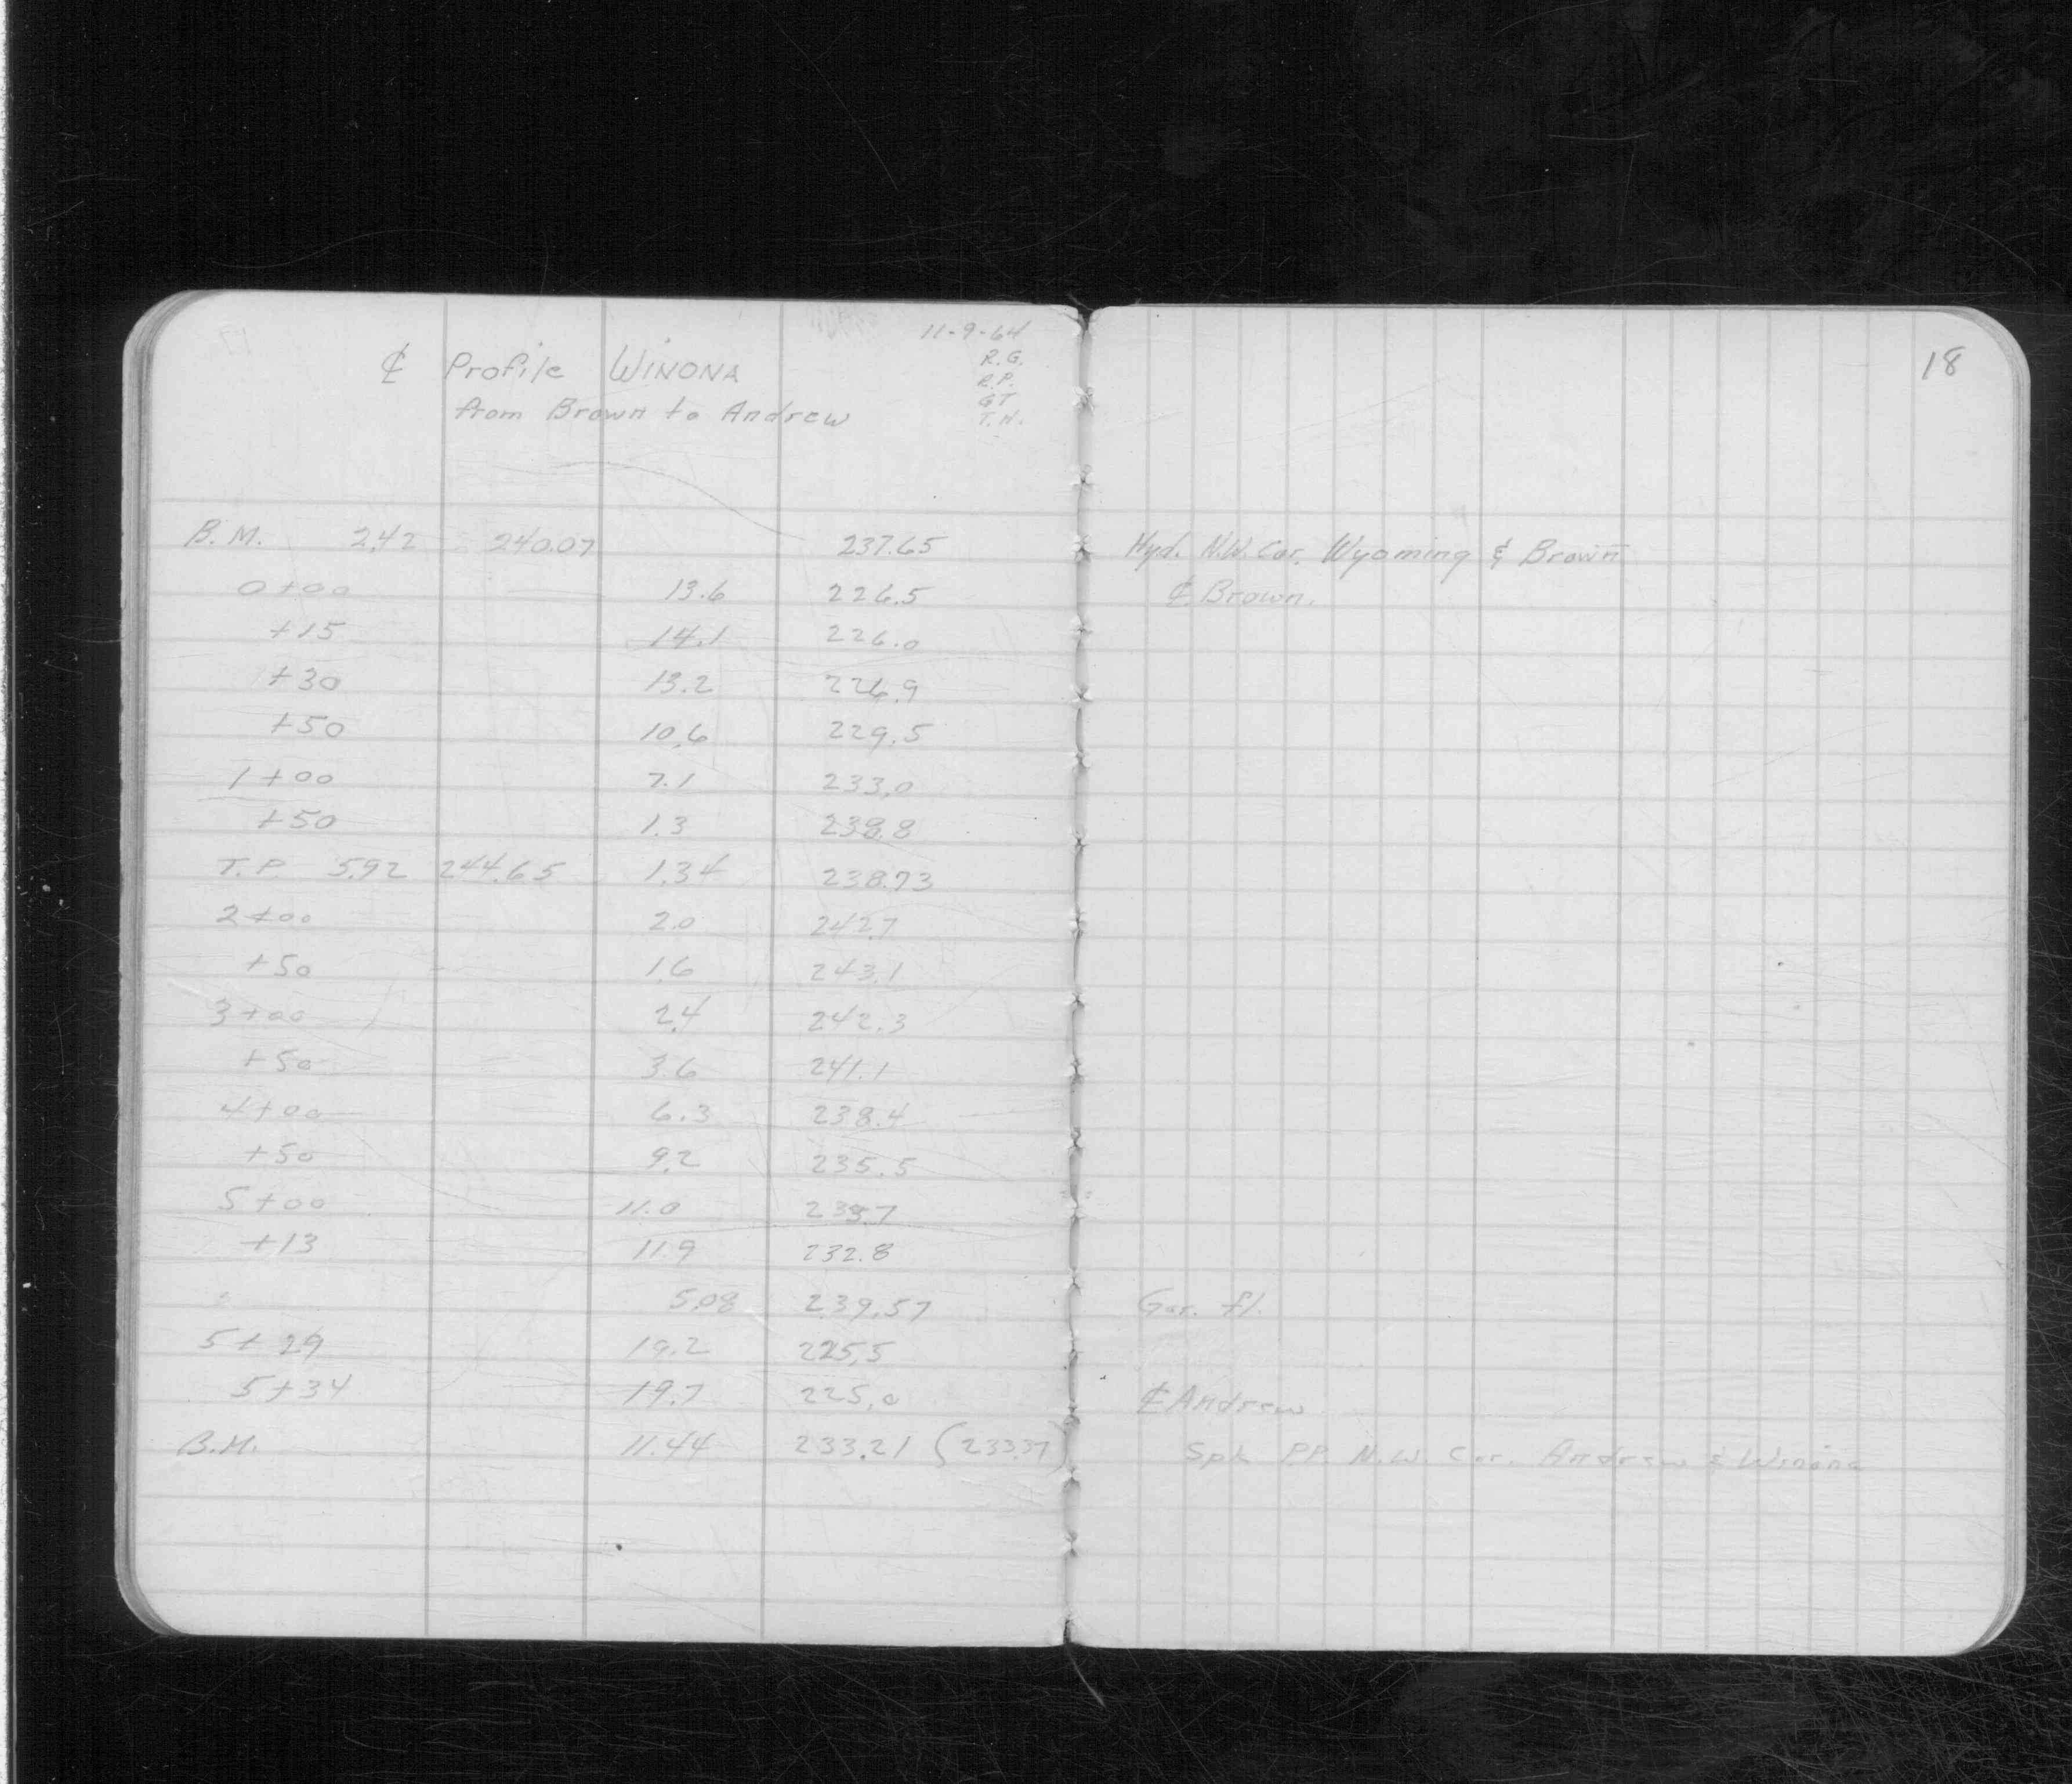 11-9-64
R.G.
R.P.
GT
T.N.
℄ Profile WINONA
from Brown to Andrew
18
B.M. 2.42 240.07 237.65 Hyd. N.W. Cor. Wyoming & Brown
0+00 13.6 226.5 ℄ Brown.
+15 14.1 226.0
+30 13.2 226.9
+50 10.6 229.5
1+00 7.1 233.0
+50 1.3 238.8
T.P. 5.92 244.65 1.34 238.73
2+00 2.0 242.7
+50 1.6 243.1
3+00 2.4 242.3
+50 3.6 241.1
4+00 6.3 238.4
+50 9.2 235.5
5+00 11.0 233.7
+13 11.9 232.8
5.08 239.57 Gar. fl.
5+29 19.2 225.5
5+34 19.7 225.0 ℄ Andrew
B.M. 11.44 233.21 (233.37) Spk PP. N.W. Cor. Andrew & Winona